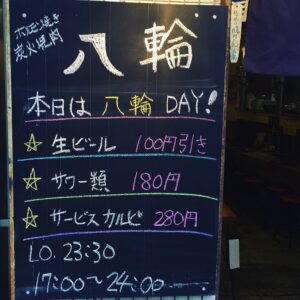 ホルモン焼き
炭火焼肉
八輪
本日は 八輪 DAY!
☆ 生ビール 100円引き
☆ サワー類 180円
☆ サービスカルビ 280円
L.O. 23:30
17:00~24:00